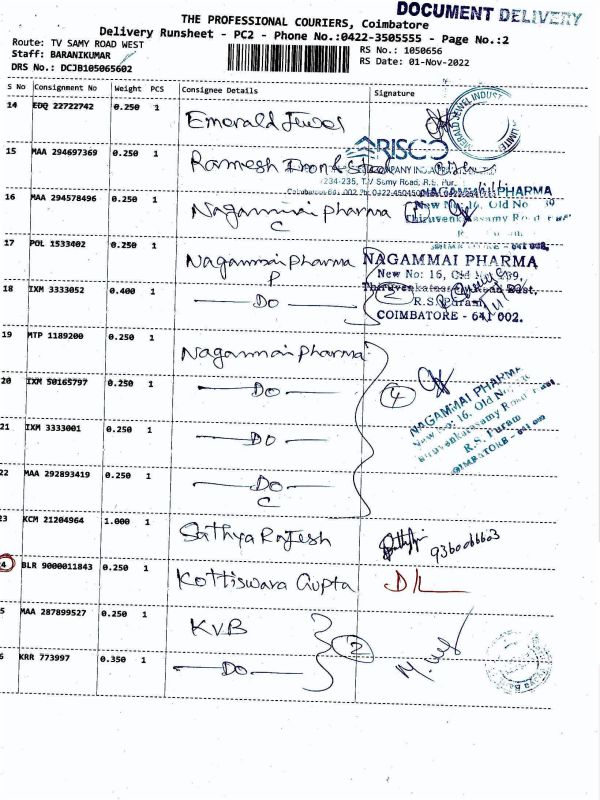 DOCUMENT DELIVERY
THE PROFESSIONAL COURIERS, Coimbatore
Delivery Runsheet - PC2 - Phone No.:0422-3505555 - Page No.:2
Route: TV SAMY ROAD WEST
RS No.: 1050656
Staff: BARANIKUMAR
RS Date: 01-Nov-2022
DRS No.: DCJB105065602
S No Consignment No Weight PCS Consignee Details Signature
14 EDQ 22722742 0.250 1 Emerald Jewel
15 MAA 294697369 0.250 1 Ramesh Iron &
ARISCO
234-235, T.V Samy Road, R.S. Pur.
16 MAA 294578496 0.250 1 Nagammai Pharma
C
NAGAMMAI PHARMA
New No: 16, Old No
17 POL 1533402 0.250 1 Nagammai Pharma
P
NAGAMMAI PHARMA
New No: 16, Old No
18 IXM 3333052 0.400 1 DO
2
R.S. Puram
COIMBATORE - 641 002.
19 MTP 1189200 0.250 1 Nagammai Pharma
20 IXM 50165797 0.250 1 DO
4
NAGAMMAI PHARMA
New No: 16, Old No
R.S. Puram
21 IXM 3333001 0.250 1 DO
22 MAA 292893419 0.250 1 DO
C
23 KCM 21204964 1.000 1 Sathya Rajesh
24 BLR 9000011843 0.250 1 Kottiswara Gupta D/L
5 MAA 287899527 0.250 1 KVB
2
6 KRR 773997 0.350 1 DO